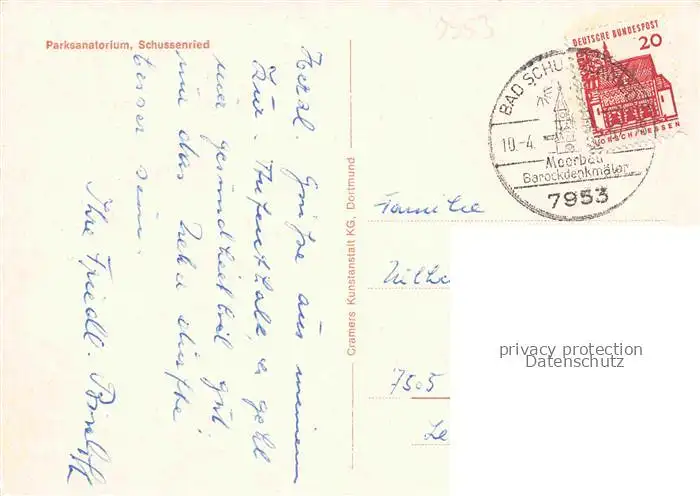 Parksanatorium, Schussenried
7953
DEUTSCHE BUNDESPOST
20
LORSCH/HESSEN
BAD SCHUSSENRIED
10.-4.
Moorbad
Barockdenkmäler
7953
Herzl. Grüße aus meinem
Kur-Aufenthalt, es geht
mir gesundheitlich gut
nur das Wetter dürfte
besser sein.
Ihre Friedl.
Cramers Kunstanstalt KG, Dortmund
Familie
7505
privacy protection
Datenschutz